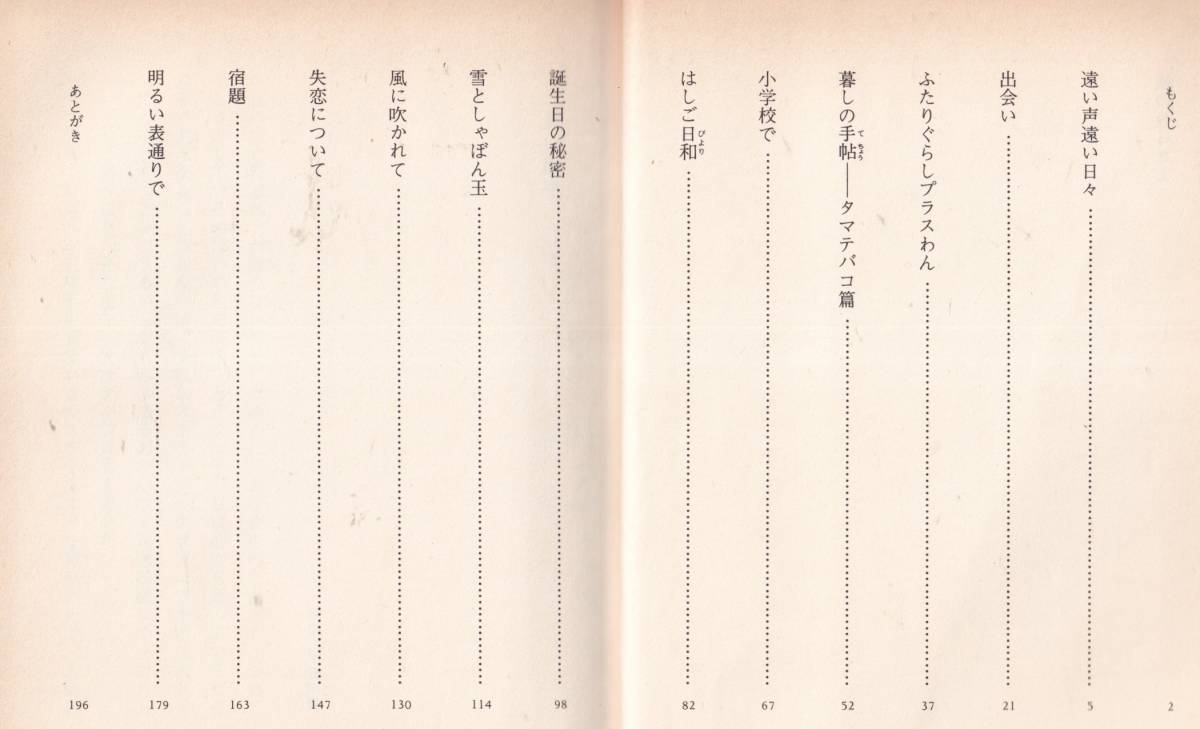 もくじ 2
遠い声遠い日々 5
出会い 21
ふたりぐらしプラスわん 37
暮しの手帖――タマテバコ篇 52
小学校で 67
はしご日和 82
誕生日の秘密 98
雪としゃぼん玉 114
風に吹かれて 130
失恋について 147
宿題 163
明るい表通りで 179
あとがき 196